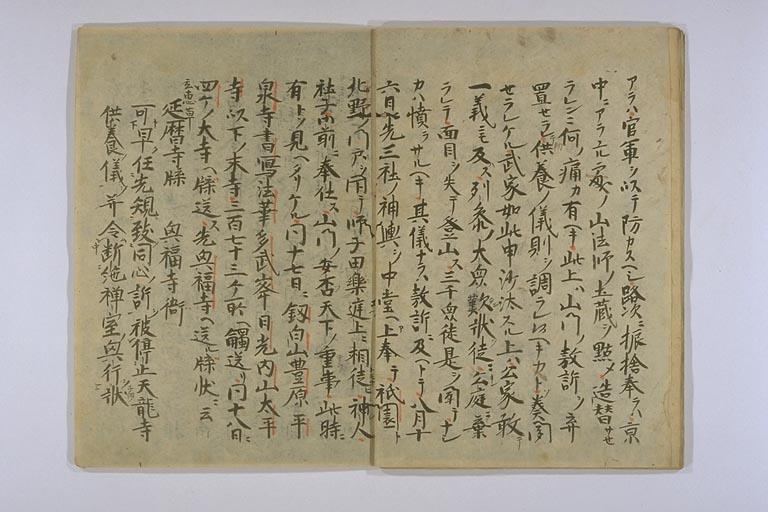 アラハ官軍ヲ以テ防カスヘシ路次ニ振捨奉ラハ京
中ニアラユル処ノ山法師ノ土蔵ヲ點メ造替サせ
ランニ何ノ痛カ有ヘキ此上ハ山門ノ嗷訴ヲ弃
置セラレ供養ノ儀則ヲ調ラレ候ヘキカト奏聞
セラレケル武家如此申沙汰スル上ハ公家敢テ
一義ニモ及ス列参ノ大衆歎状徒ニ公庭ニ棄
ラレテ面目ヲ失テ登山ス三千衆徒是ヲ聞テナシ
カハ憤ラサルヘキ其儀ナラハ嗷訴ニ及ヘトテ八月十
六日ニ先三社ノ神輿ヲ中堂ヘ上奉テ祇園
北野ノ門戸ヲ閉テ師子田樂庭上ニ相從神人
社子前ニ奉仕ス山門ノ安否天下ノ重事此時ニ
有トソ見ヘタリケル同十七日ニ釼白山豊原平
泉寺書寫法華多武峯日光内山太平
寺以下ノ末寺三百七十三ケ所ヘ觸送リ同十八日ニ
四ケノ大寺ヘ牒送ス先興福寺ヘ送ル牒状ニ云
延暦寺牒 興福寺衙
可早任先規致同心訴被停止天龍寺
供養儀并令断絶禅室興行状